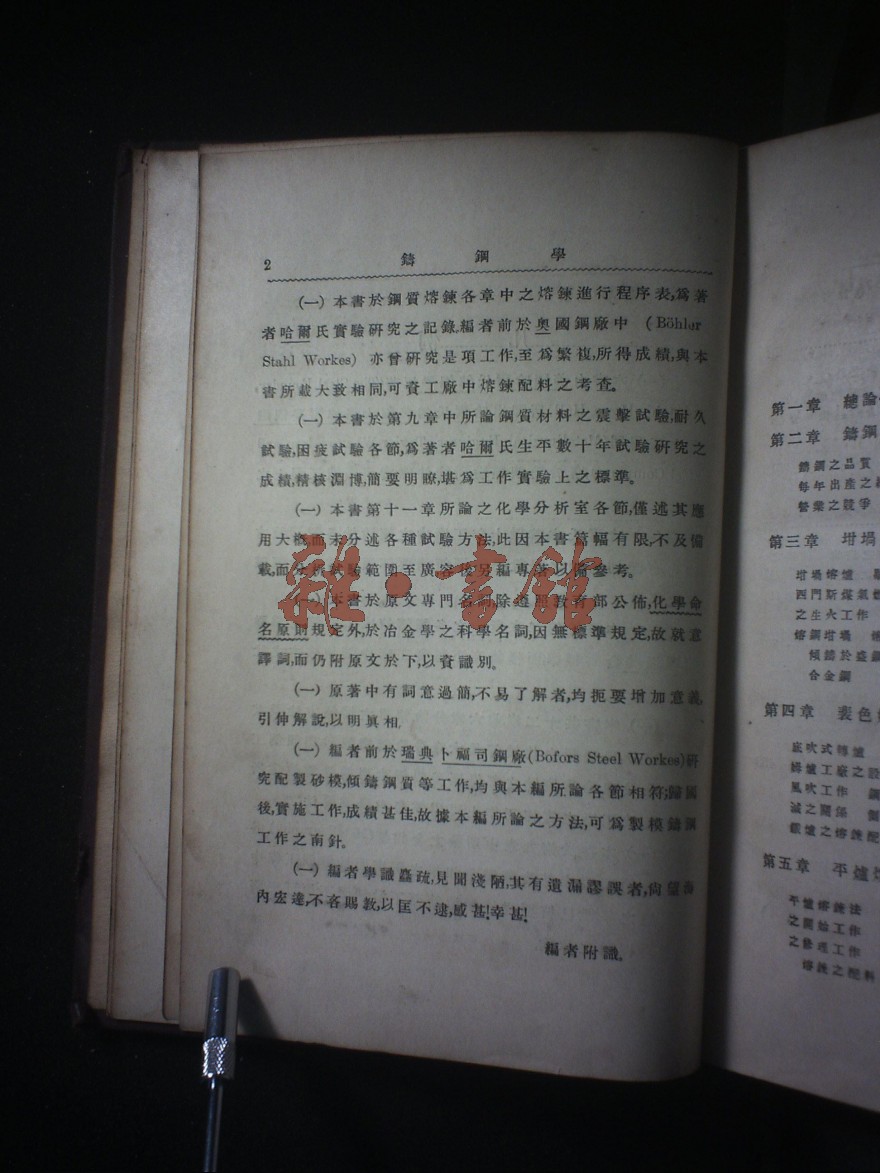 2 鑄鋼學
(一) 本書於鋼質熔鍊各章中之熔鍊進行程序表,爲著
者哈爾氏實驗研究之記錄,編者前於奧國鋼廠中 (Böhler
Stahl Workes) 亦曾研究是項工作,至爲繁複,所得成績,與本
書所載大致相同,可資工廠中熔鍊配料之考查。
(一) 本書於第九章中所論鋼質材料之震擊試驗,耐久
試驗,困疲試驗各節,爲著者哈爾氏生平數十年試驗研究之
成績,精核淵博,簡要明瞭,堪爲工作實驗上之標準。
(一) 本書第十一章所論之化學分析室各節,僅述其應
用大概,而未分述各種試驗方法,此因本書篇幅有限,不及備
載,而分析試驗範圍至廣,容後另編專書以備參考。
(一) 本書於原文專門名詞,除遵照教育部公佈,化學命
名原則規定外,於冶金學之科學名詞,因無標準規定,故就意
譯詞,而仍附原文於下,以資識別。
(一) 原著中有詞意過簡,不易了解者,均扼要增加意義,
引伸解說,以明眞相.
(一) 編者前於瑞典卜福司鋼廠(Bofors Steel Workes)研
究配製砂模,傾鑄鋼質等工作,均與本編所論各節相符;歸國
後,實施工作,成績甚佳,故據本編所論之方法,可爲製模鑄鋼
工作之南針。
(一) 編者學識麤疏,見聞淺陋,其有遺漏謬誤者,尚望海
內宏達,不吝賜教,以匡不逮,感甚!幸甚!
編者附識。
雜·書館
第一章 總論
第二章 鑄鋼
鑄鋼之品質
每年出產之
營業之競爭
第三章 坩堝
坩堝熔爐
西門斯煤氣
之生火工作
熔鋼坩堝
傾鑄於盛鋼
合金鋼
第四章
底吹式轉爐
姆爐工廠之設
風吹工作
減之關係
第五章 平爐
平爐熔鍊法
之開始工作
之修理工作
熔鍊之配料